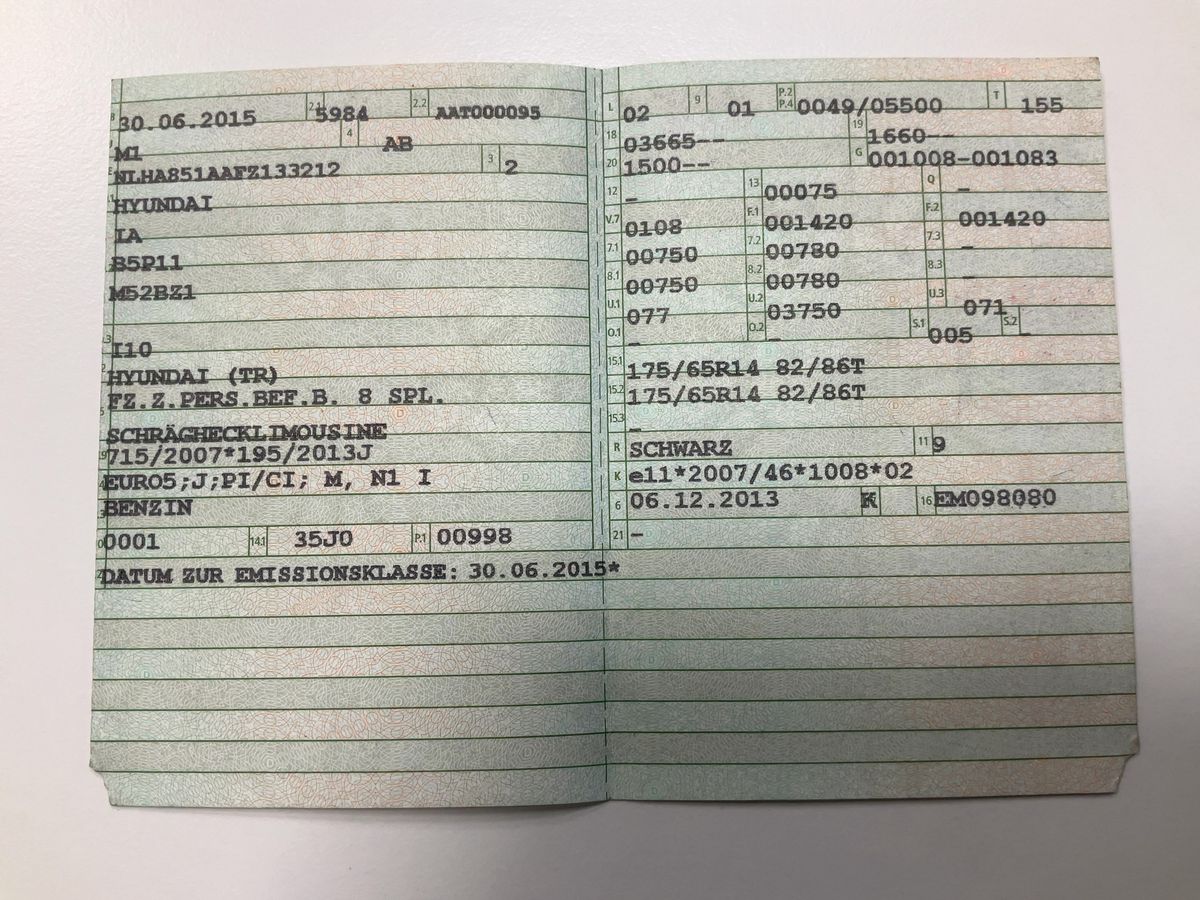 B 30.06.2015 2.1 5984 2.2 AAT000095
M1 4 AB
E NLHA851AAFZ133212 3 2
HYUNDAI
IA
B5P11
M52BZ1
I10
HYUNDAI (TR)
FZ.Z.PERS.BEF.B. 8 SPL.
SCHRÄGHECKLIMOUSINE
715/2007*195/2013J
EURO5;J;PI/CI; M, N1 I
BENZIN
0001 14.1 35J0 P.1 00998
DATUM ZUR EMISSIONSKLASSE: 30.06.2015*
L 02 9 01 P.2 P.4 0049/05500 T 155
18 03665-- 19 1660--
20 1500-- G 001008-001083
12 - 13 00075 Q -
V.7 0108 F.1 001420 F.2 001420
7.1 00750 7.2 00780 7.3 -
8.1 00750 8.2 00780 8.3 -
U.1 077 U.2 03750 U.3 071
O.1 - O.2 - S.1 005 S.2 -
15.1 175/65R14 82/86T
15.2 175/65R14 82/86T
15.3 -
R SCHWARZ 11 9
K e11*2007/46*1008*02
6 06.12.2013 K 16 EM098080
21 -